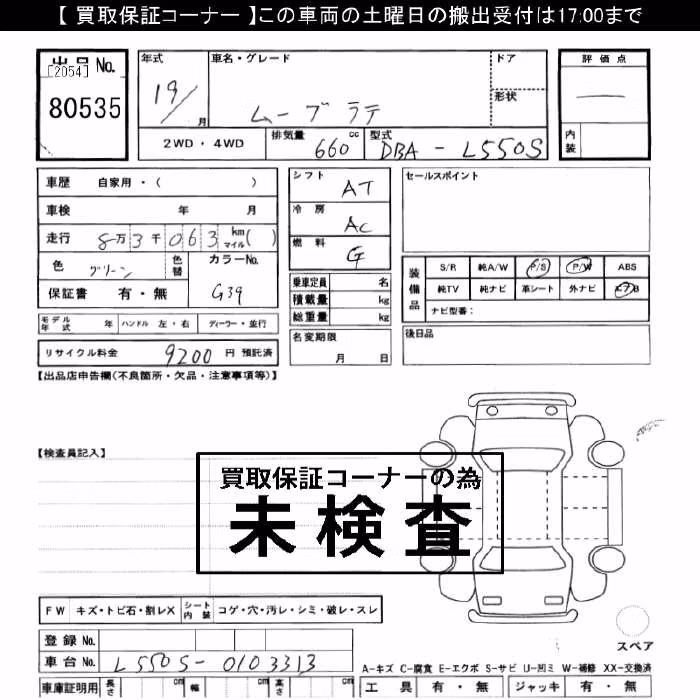 【 買取保証コーナー 】この車両の土曜日の搬出受付は17:00まで
出品 No.
[2054]
80535
年式
19/
月
車名・グレード
ムーブラテ
ドア
形状
評価点
内装
2WD・4WD
排気量
660 cc
型式
DBA - L550S
車歴 自家用・( )
車検 年 月
走行 8万3千063 km マイル( )
色 グリーン
色替
カラーNo.
G39
保証書 有・無
モデル年式 年 ハンドル 左・右 ディーラー・並行
リサイクル料金 9200 円 預託済
シフト AT
冷房 AC
燃料 G
乗車定員 名
積載量 kg
総重量 kg
名変期限
月 日
セールスポイント
装備品
S/R 純A/W P/S P/W ABS
純TV 純ナビ 革シート 外ナビ エアB
ナビ型番:
後日品
【出品店申告欄(不良箇所・欠品・注意事項等)】
【検査員記入】
買取保証コーナーの為
未検査
FW キズ・トビ石・割レX シート内装 コゲ・穴・汚レ・シミ・破レ・スレ
登録 No.
車台 No. L550S-0103313
車庫証明用 長さ cm 幅 cm 高さ cm
スペア
A-キズ C-腐食 E-エクボ S-サビ U-凹ミ W-補修 XX-交換済
工具 有・無 ジャッキ 有・無